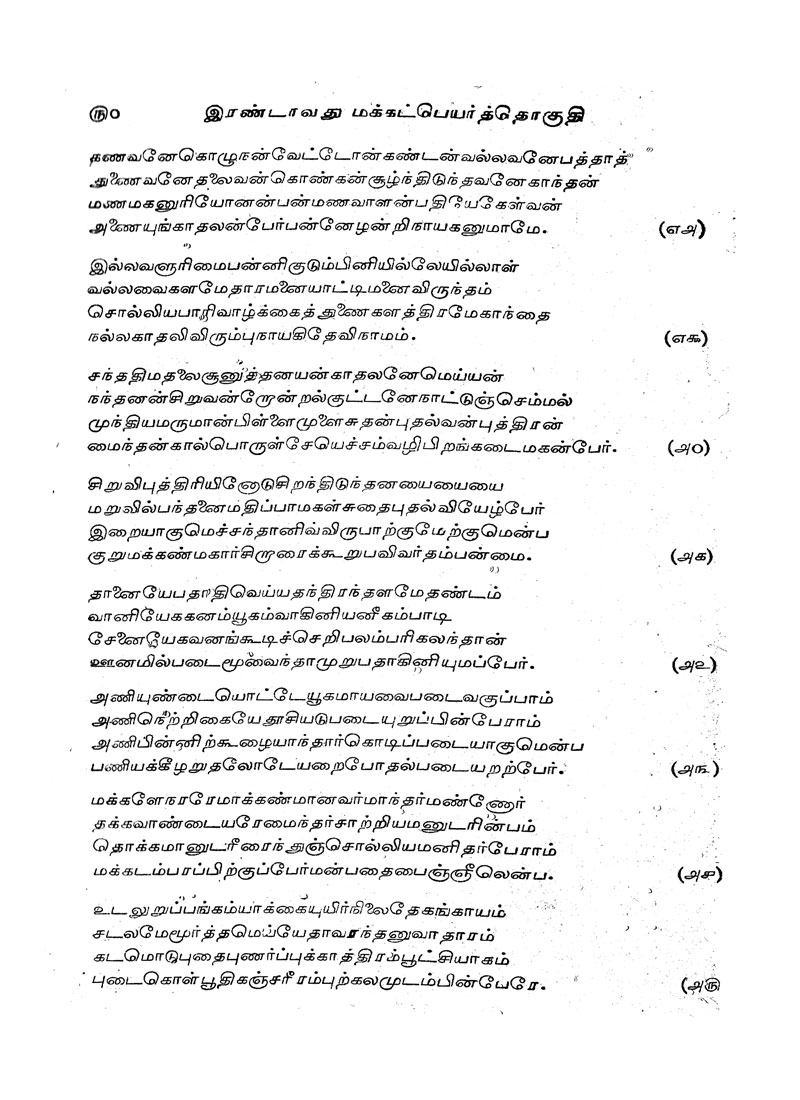 ௫௦ இரண்டாவது மக்கட்பெயர்த்தொகுதி
கணவனேகொழுநன்வேட்டோன்கண்டன்வல்லவனேபத்தாத்
துணைவனேதலைவன்கொண்கன்சூழ்ந்திடுந்தவனேகாந்தன்
மணமகனுரியோனன்பன்மணவாளன்பதியேகேள்வன்
அணையுங்காதலன்பேர்பன்னேழன்றிநாயகனுமாமே. (எஅ)
இல்லவளுரிமைபன்னிகுடும்பினியில்லேயில்லாள்
வல்லவைகளமேதாரமனையாட்டிமனைவிருந்தம்
சொல்லியபாரிவாழ்க்கைத்துணைகளத்திரமேகாந்தை
நல்லகாதலிவிரும்புநாயகிதேவிநாமம். (எ௯)
சந்ததிமதலைசூனுத்தனயன்காதலனேமெய்யன்
நந்தனன்சிறுவன்றோன்றல்குட்டனேநாட்டுஞ்செம்மல்
முந்தியமருமான்பிள்ளைமுளைசுதன்புதல்வன்புத்திரன்
மைந்தன்கால்பொருள்சேயெச்சம்வழிபிறங்கடைமகன்பேர். (அ௦)
சிறுவிபுத்திரியினோடுசிறந்திடுந்தனயையையை
மறுவில்பந்தனைமதிப்பாமகள்சுதைபுதல்வியேழ்பேர்
இறையாகுமெச்சந்தானிவ்விருபாற்குமேற்குமென்ப
குறுமக்கண்மகார்சிறாரைக்கூறுபவிவர்தம்பன்மை. (அ௧)
தானையேபதாதிவெய்யதந்திரந்தளமேதண்டம்
வானியேககனம்யூகம்வாகினியனீகம்பாடி
சேனையேகவனங்கூடிச்செறிபலம்பரிகலந்தான்
ஊனமில்படைமூவைந்தாமுறுபதாகினியுமப்பேர். (அ௨)
அணியுண்டையொட்டேயூகமாயவைபடைவகுப்பாம்
அணிநெற்றிகையேதூசியடுபடையுறுப்பின்பேராம்
அணிபின்னிற்கூழையாந்தார்கொடிப்படையாகுமென்ப
பணியக்கீழறுதலோடேயறைபோதல்படையறற்பேர். (அ௩)
மக்களேநரரேமாக்கண்மானவர்மாந்தர்மண்ணோர்
தக்கவாண்டையரேமைந்தர்சாற்றியமனுடரின்பம்
தொக்கமானுடரீரைந்துஞ்சொல்லியமனிதர்பேராம்
மக்கடம்பரப்பிற்குப்பேர்மன்பதைபைஞ்ஞீலென்ப. (அ௪)
உடலுறுப்பங்கம்யாக்கையுயிர்நிலைதேகங்காயம்
சடலமேமூர்த்தமெய்யேதாவரந்தனுவாதாரம்
கடமொடுபுதைபுணர்ப்புக்காத்திரம்பூட்சியாகம்
புடைகொள்பூதிகஞ்சரீரம்புற்கலமுடம்பின்பேரே. (அ௫)